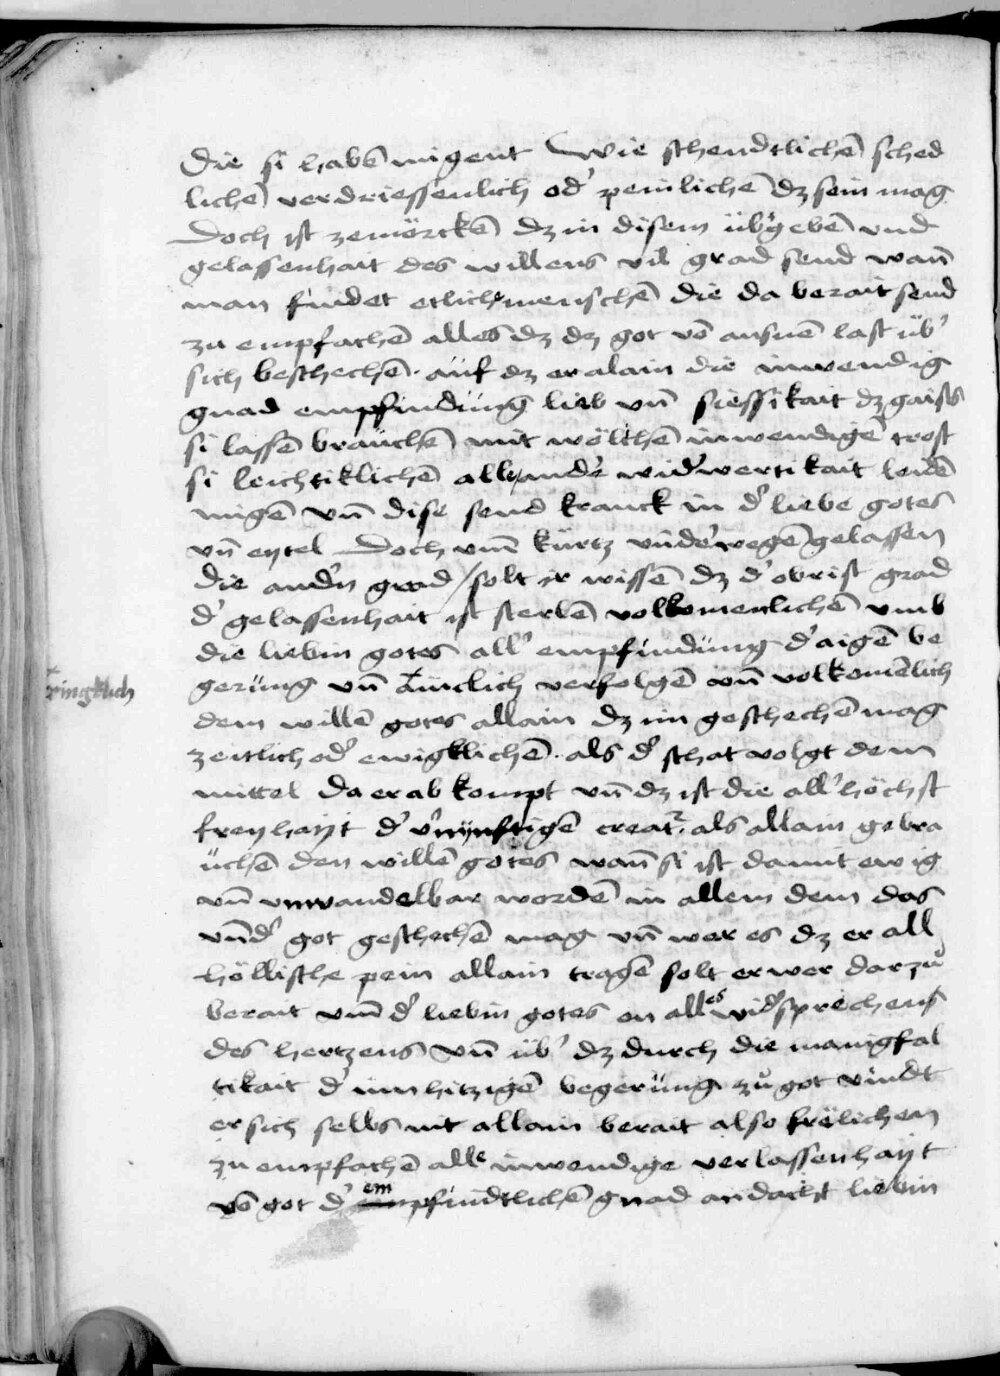 die si habē migent Wie schendtlichē sched
lichē verdriessenlich od' peinlichē dz sein mag
Doch ist zemörckē dz in disem üb'gebē vnd
gelassenhait des willens vil grad send wañ
man findet etlich menschē die da berait send
zu empfachē alles dz dz got vō aussnē last üb'
sich beschechē · auf dz er alain die inwendig
gnad empfindüng lieb vñ siessikait dz gaists
si lassē brauchē mit wölchē inwendigē trost
si leichtiklichē all ander wid'wertikait leidē
migē vñ dise send kranck in d' liebe gotes
vñ eytel Doch vm kürtz vnderwegē gelassen
die and'n grad / solt ir wissē dz d' obrist grad
d' gelassenhait ist sterbē volkomenlichē vmb
die liebin gotes all' empfindüng d' aigē be
gerüng vñ äinclich verfolgē vñ volkomēlich
tringklich
dem willē gotes allain dz im geschechē mag
zeitlich od' ewigklichē · als d' schat volgt dem
mittel da er ab kompt vñ dz ist die all'höchst
freyhayt d' v'nynftigē creat². als allain gebra
üchē den willē gotes wañ si ist damit ewig
vñ vnwandelbar wordē in allem dem das
vnd' got geschechē mag vñ wer es dz er all
höllische pein allain tragē solt er wer darzů
berait vm d' liebin gotes on alles wid'sprechens
des hertzens vñ üb' dz durch die manigfal
tikait d' inn hitzigē begerüng zů got vindt
er sich selbs nit allain berait also frölichen
zu empfachē alle inwendige verlassenhayt
vō got d' empfindtlichē gnad andacht liebin